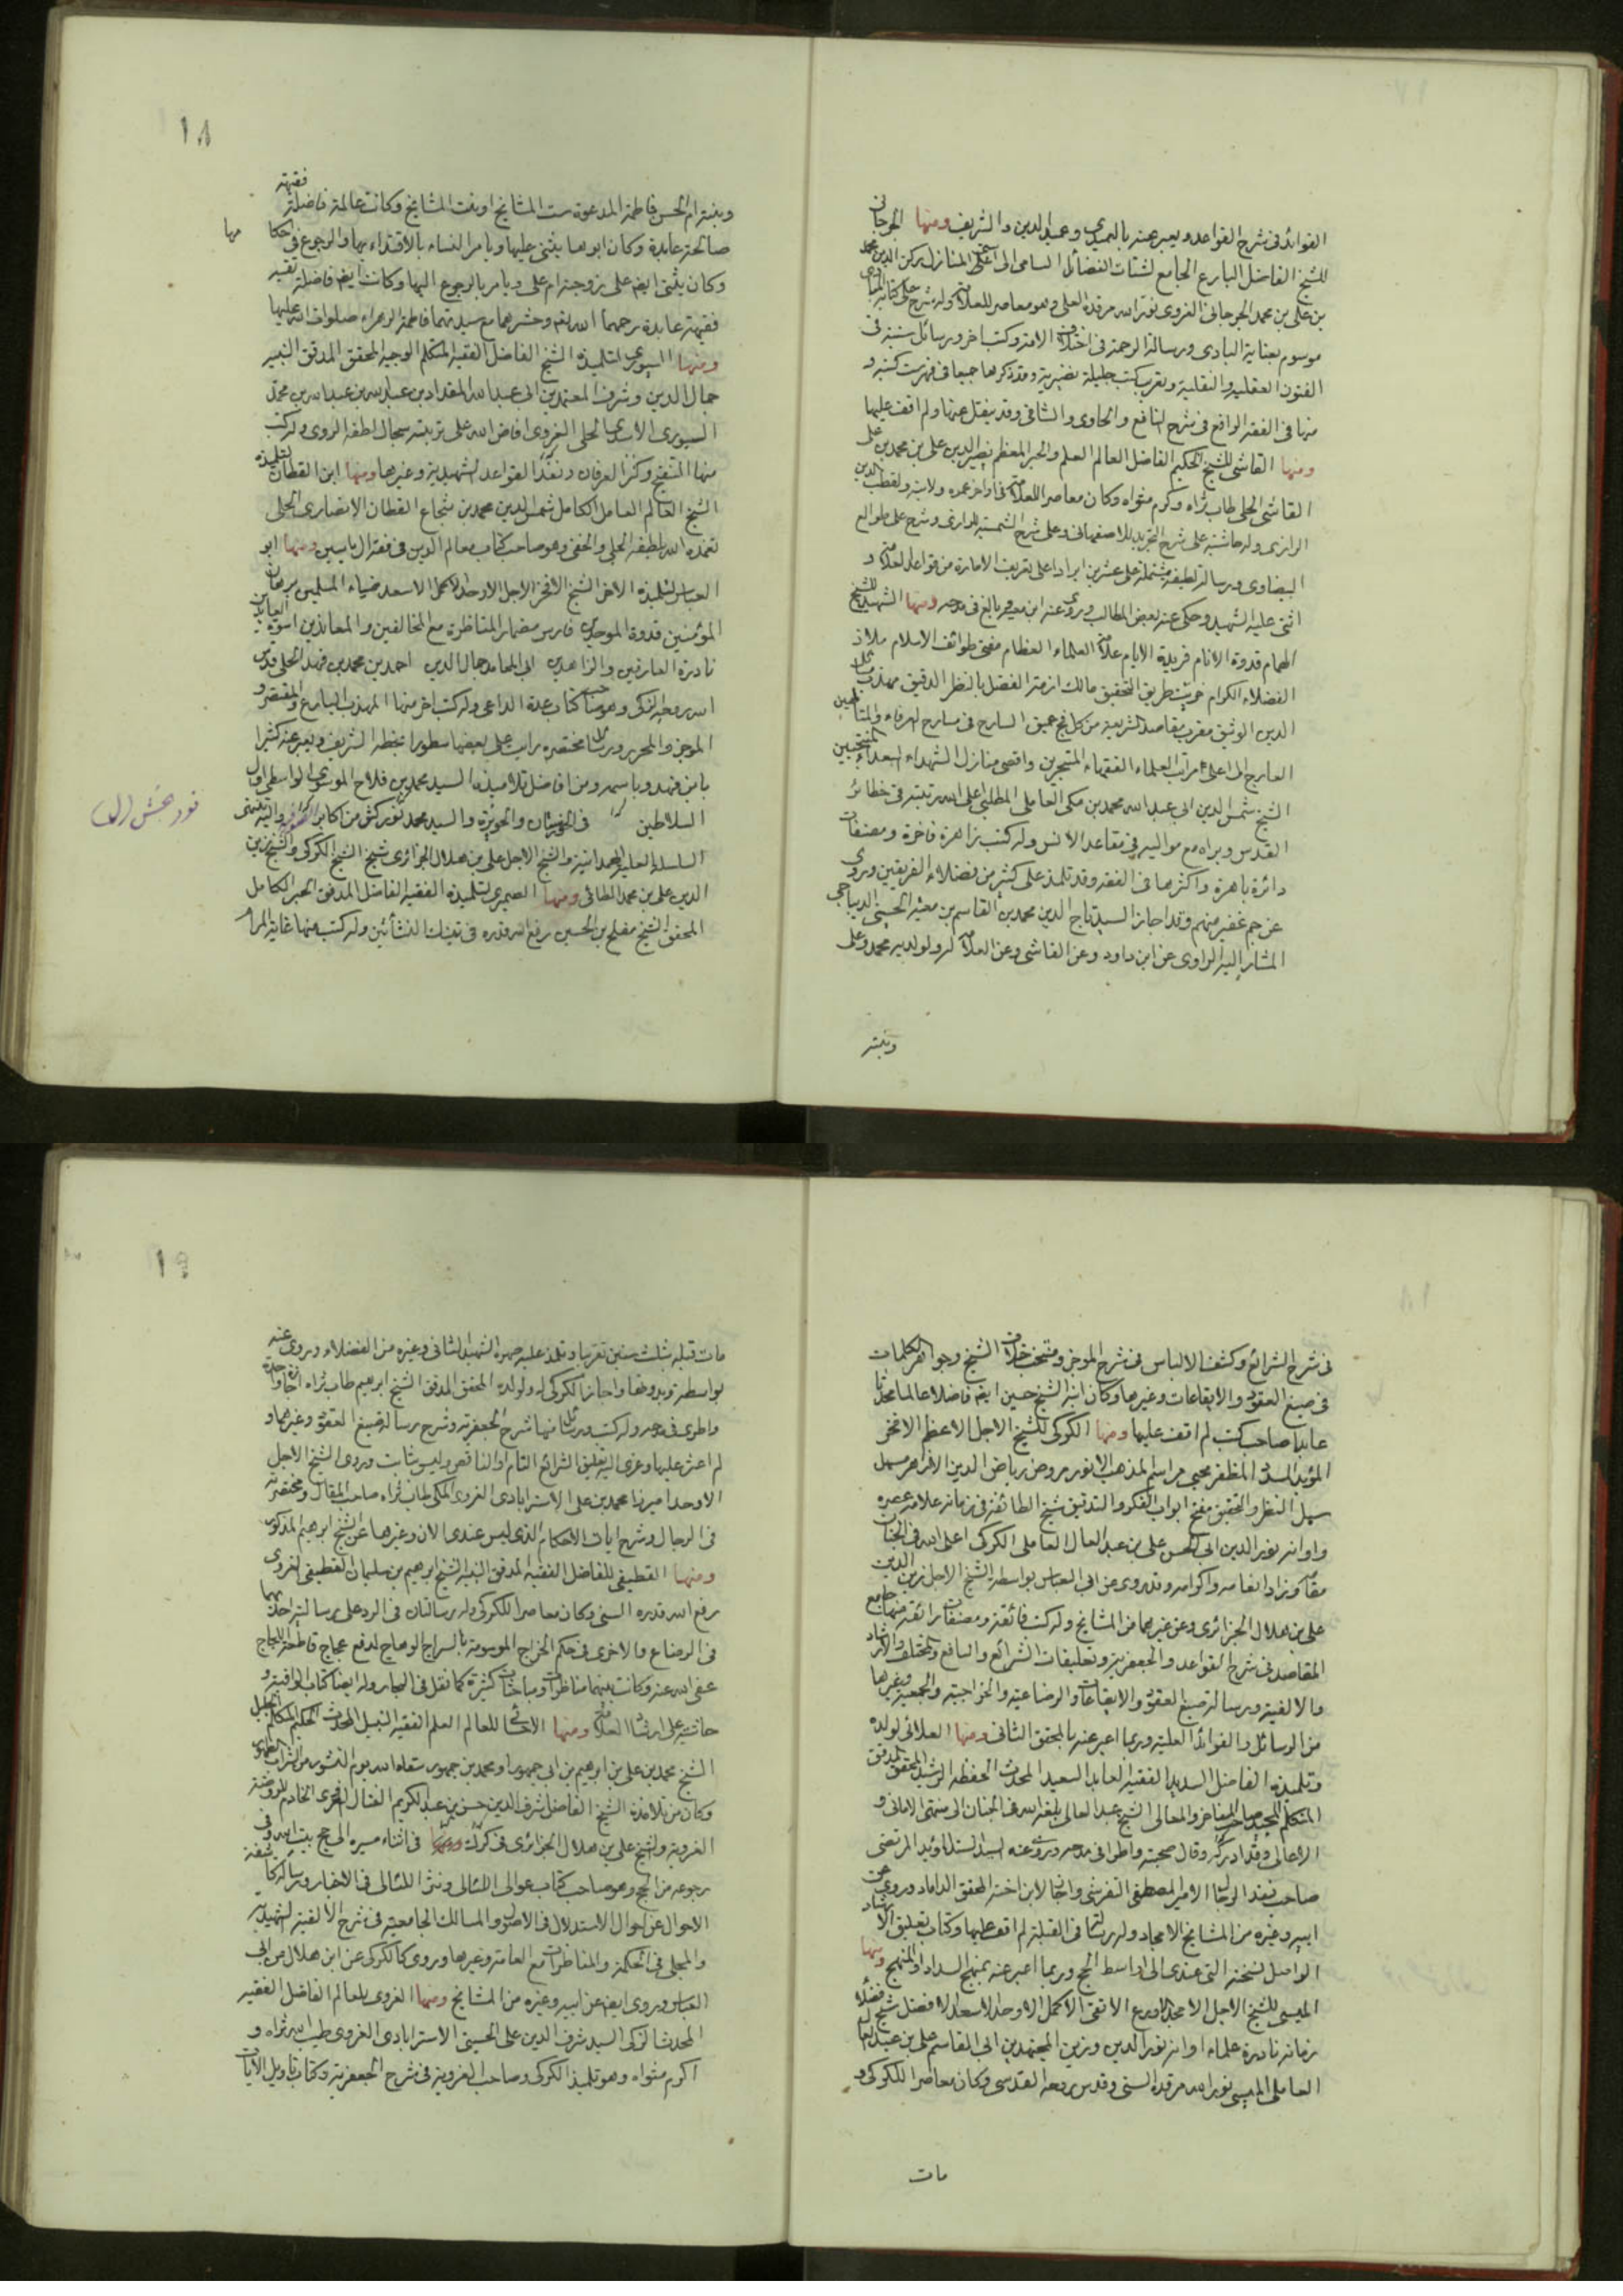 الفوائد فى شرح القواعد ويعبر عنه بالعميدي وعميد الدين والشريف ومنها الجرجانى
للشيخ الفاضل البارع الجامع لشتات الفضائل السامى الى المنازل ركن الدين محمد
بن على بن محمد الجرجانى الغروى نور الله مرقده العلى وهو معاصر للعلامة وله شرح على كتاب المبادى
موسوم بغاية البادى ورسالة الرحمة فى اختلاف الامة وكتب اخر ورسائل سنية فى
الفنون العقلية والنقلية وتعريب كتب جليلة نصيرية وقد ذكرها جميعا فى فهرست كتبه و
منها فى الفقه الرافع فى شرح النافع والحاوى والشافى وقد ينقل عنها ولم اقف عليها
ومنها القاشى للشيخ الحكيم الفاضل العالم العلم والحبر المعظم نصير الدين على بن محمد بن على
القاشى الحلى طاب ثراه وكرم مثواه وكان معاصر اللعلامة فى اواخر عمره ولابنه ولقطب الدين
الرازى وله حاشية على شرح التجريد للاصفهانى وعلى شرح الشمسية للرازى وشرح على طوالع
البيضاوى ورسالة لطيفة مشتملة على عشرين ايرادا على تعريف الطهارة من قواعد العلامة و
اثنى عليه الشهيد وحكى عنه بعض المطالب وروى عنه ابن معية وبالغ فى مدحه ومنها الشهيد للشيخ
الهمام قدوة الانام فريدة الايام علامة العلماء العظام مفتى طوائف الاسلام ملاذ
الفضلاء الكرام خريت طريق التحقيق مالك ازمة الفضل بالنظر الدقيق مهذب مسائل
الدين الوثيق مقرب مقاصد الشريعة من كل فج عميق السارح فى مسارح العرفاء والمتألهين
العارج الى اعلى مراتب العلماء الفقهاء المتبحرين واقصى منازل الشهداء السعداء المنتجبين
الشيخ شمس الدين ابى عبد الله محمد بن مكى العاملى المطلبى اعلى الله رتبته فى حظائر
القدس وبراه مع مواليه فى مقاعد الانس وله كتب زاهرة فاخرة ومصنفات
دائرة باهرة واكثرها فى الفقه وقد تلمذ على كثير من فضلاء الفريقين وروى
عن جم غفير منهم وقد اجاز السيد تاج الدين محمد بن القاسم بن معية الحسينى الديباجى
المشار اليه الراوى عن ابن داود وعن القاشى وعن العلامة له ولولديه محمد وعلى
وبنته
١٨
وبنته ام الحسن فاطمة المدعوة بست المشائخ او بنت المشائخ وكانت عالمة فاضلة فقيهة
صالحة عابدة وكان ابوها يثنى عليها ويامر النساء بالاقتداء بها والرجوع فى احكامها
وكان يثنى ايضا على زوجته ام على ويامر بالرجوع اليها وكانت ايضا فاضلة تقية
فقيهة عابدة رحمهما الله تعالى وحشرهما مع سيدتهما فاطمة الزهراء صلوات الله عليها
ومنها السيورى لتلميذه الشيخ الفاضل الفقيه المتكلم الوجيه المحقق المدقق النبيه
جمال الدين وشرف المعتمدين ابى عبد الله المقداد بن عبد الله بن محمد
السيورى الاسدى الحلى الغروى افاض الله على تربته سجال لطفه الروى وله كتب
منها التنقيح وكنز العرفان ونضد القواعد الشهيدية وغيرها ومنها ابن القطان لتلميذه
الشيخ العالم العامل الكامل شمس الدين محمد بن شجاع القطان الانصارى الحلى
تغمده الله بلطفه الجلى والخفى وهو صاحب كتاب معالم الدين فى فقه ال ياسين ومنها ابو
العباس لتلميذه الاخر الشيخ الافخر الاجل الاوحد الاكمل الاسعد ضياء المسلمين برهان
المؤمنين قدوة الموحدين فارس مضمار المناظرة مع المخالفين والمعاندين اسوة العابدين
نادرة العارفين والزاهدين ابى المحامد جمال الدين احمد بن محمد بن فهد الحلى قدس
الله روحه الزكى وهو صاحب كتاب عدة الداعى وله كتب اخر منها المهذب البارع والمقتصر و
الموجز والمحرر ورسائل مختصره رايت على بعضها سطورا بخطه الشريف ويعبر عنه كثيرا
بابن فهد وباسمه ومن افاضل تلاميذه السيد محمد بن فلاح الموسوى الواسطى اول
السلاطين فى الخوزستان والحويزة والسيد محمد نوربخش من اكابر واليه ينتهى
السلسلة العلية الهمدانية والشيخ الاجل على بن هلال الجزائرى شيخ الشيخ الكركى والشيخ زين
الدين على بن محمد الطائى ومنها الصيمرى لتلميذه الفقيه الفاضل المدقق الحبر الكامل
المحقق الشيخ مفلح بن الحسين رفع الله قدره فى تينك النشأتين وله كتب منها غاية المرام
نوربخش
فى شرح الشرائع وكشف الالباس فى شرح الموجز ومنتخب خلاف الشيخ وجواهر الكلمات
فى صيغ العقود والايقاعات وغيرها وكان ابنه الشيخ حسين ايضا فاضلا عالما محدثا
عابدا صاحب كتب لم اقف عليها ومنها الكركى للشيخ الاجل الاعظم الافخر
المؤيد المسدد المظفر محيى مراسم المذهب الانور مروض رياض الدين الازهر مسهل
سبل النظر والتحقيق مفتح ابواب الفكر والتدقيق شيخ الطائفة فى زمانه علامة عصره
واوانه نور الدين ابى الحسن على بن عبد العال العاملى الكركى اعلى الله فى الجنان
مقامه وزاد انعامه واكرامه وقد روى عن ابى العباس بواسطة الشيخ الاجل زين الدين
على بن هلال الجزائرى وعن غيرهما من المشائخ وله كتب فائقة ومصنفات رائقة منها جامع
المقاصد فى شرح القواعد والجعفرية وتعليقات الشرائع والنافع والمختلف والارشاد
والالفية ورسالة صيغ العقود والايقاعات والرضاعية والخراجية والجمعة وغيرها
من الرسائل والفوائد العلية وربما اعبر عنه بالمحقق الثانى ومنها العلائى لولده
وتلميذه الفاضل السديد الفقيه العابد السعيد المحدث الحفظة الرشيد المحقق المدقق
المتكلم المجيد صاحب المفاخر والمعالى الشيخ عبد العالى بلغه الله فى الجنان الى منتهى الامانى و
الاعالى وقد ادركه وقال صحبته واطرا فى مدحه وروى عنه السيد السند المؤيد المرتضى
صاحب نقد الرجال الامير المصطفى التفرشى واجاز لابن اخته المحقق الداماد وروى عن
ابيه وغيره من المشايخ الامجاد وله رسالة فى القبلة لم اقف عليها وكتاب تعليق الارشاد
الواصل نسخته التى عندى الى اواسط الحج وربما اعبر عنه بمنهج السداد والمنهج ومنها
الميسى للشيخ الاجل الامجد الاورع الاتقى الاكمل الاوحد الاسعد الافضل شيخ فضلاء
زمانه نادرة علماء اوانه نور الدين وزين المجتهدين ابى القاسم على بن عبد العالى
العاملى الميسى نور الله مرقده السنى وقدس روحه القدسى وكان معاصرا للكركى و
مات
١٩
مات قبله بثلث سنين تقريبا وتلمذ عليه صهره الشهيد الثانى وغيره من الفضلاء وروى عنه
بواسطة وبدونها واجاز الكركى له ولولده المحقق المدقق الشيخ ابراهيم طاب ثراه اجازة واحدة
واطرى فى مدحه وله كتب ورسائل منها شرح الجعفرية وشرح رسالة صيغ العقود وغيرهما و
لم اعثر عليها وعزى اليه تعليق الشرائع التام او الناقص وليس بثابت وروى الشيخ الاجل
الاوحد ميرزا محمد بن على الاسترابادى الغروى المكى طاب ثراه صاحب المقال ومختصريه
فى الرجال وشرح ايات الاحكام الذى ليس عندى الان وغيرها عن الشيخ ابرهيم المذكور
ومنها القطيفى للفاضل الفقيه المدقق النبيه الشيخ ابرهيم بن سليمان القطيفى الغروى
رفع الله قدره السنى وكان معاصرا للكركى وله رسالتان فى الرد على رسالتيه احداهما
فى الرضاع والاخرى فى حكم الخراج الموسومة بالسراج الوهاج لدفع عجاج قاطعة اللجاج
عفى الله عنه وكانت بينهما مناظرات ومباحثات كثيرة كما نقل فى البحار وله ايضا كتاب الوافية و
حاشية على ارشاد العلامة ومنها الاحسائى للعالم العلم الفقيه النبيل المحدث الحكيم المتكلم الجليل
الشيخ محمد بن على بن ابرهيم بن ابى جمهور او محمد بن جمهور سقاه الله يوم النشور من الشراب الطهور
وكان من تلامذة الشيخ الفاضل شرف الدين حسن بن عبد الكريم الفتال الغروى الخادم للروضة
الغروية والشيخ على بن هلال الجزائرى فى كرك فى اثناء مسيره الى حج بيت الله وفى
رجوعه من الحج وهو صاحب كتاب عوالى اللئالى ونثر اللئالى فى الاخبار ورسالة كاشفة
الاحوال عن احوال الاستدلال فى الاصول والمسالك الجامعية فى شرح الالفية الشهيدية
والمجلى فى الحكمة والمناظرات مع العامة وغيرها وروى كالكركى عن ابن هلال عن ابى
العباس وروى ايضا عن ابيه وغيره من المشايخ ومنها الغروى للعالم الفاضل الفقيه
المحدث الزكى السيد شرف الدين على الحسينى الاسترابادى الغروى طيب الله ثراه و
اكرم مثواه وهو تلميذ الكركى وصاحب الغروية فى شرح الجعفرية وكتاب تاويل الايات